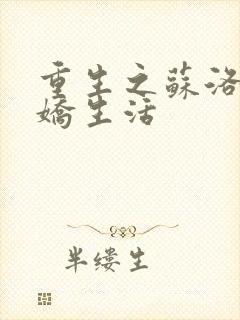 重生之蘇洛
嬌生活
半缕生